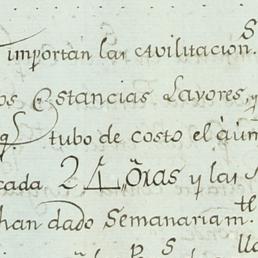 importan las avilitacion.s
os Estancias Lavores, y
q.l tubo de costo el aum
cada 24 óras y las
han dado Semanariam.te